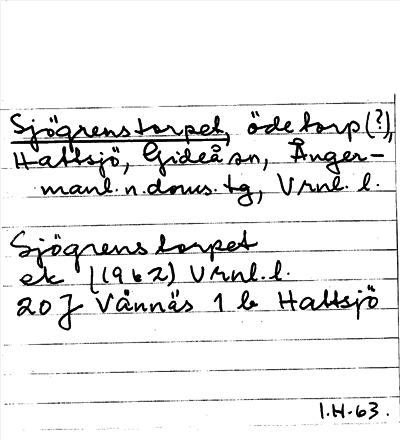 Sjögrenstorpet, ödetorp(?),
Hattsjö, Gideå sn, Ånger-
manl. n. doms. tg, Vrnl. l.
Sjögrenstorpet
ek (1962) Vrnl. l.
20 J Vännäs 1 b Hattsjö
I.H-63.